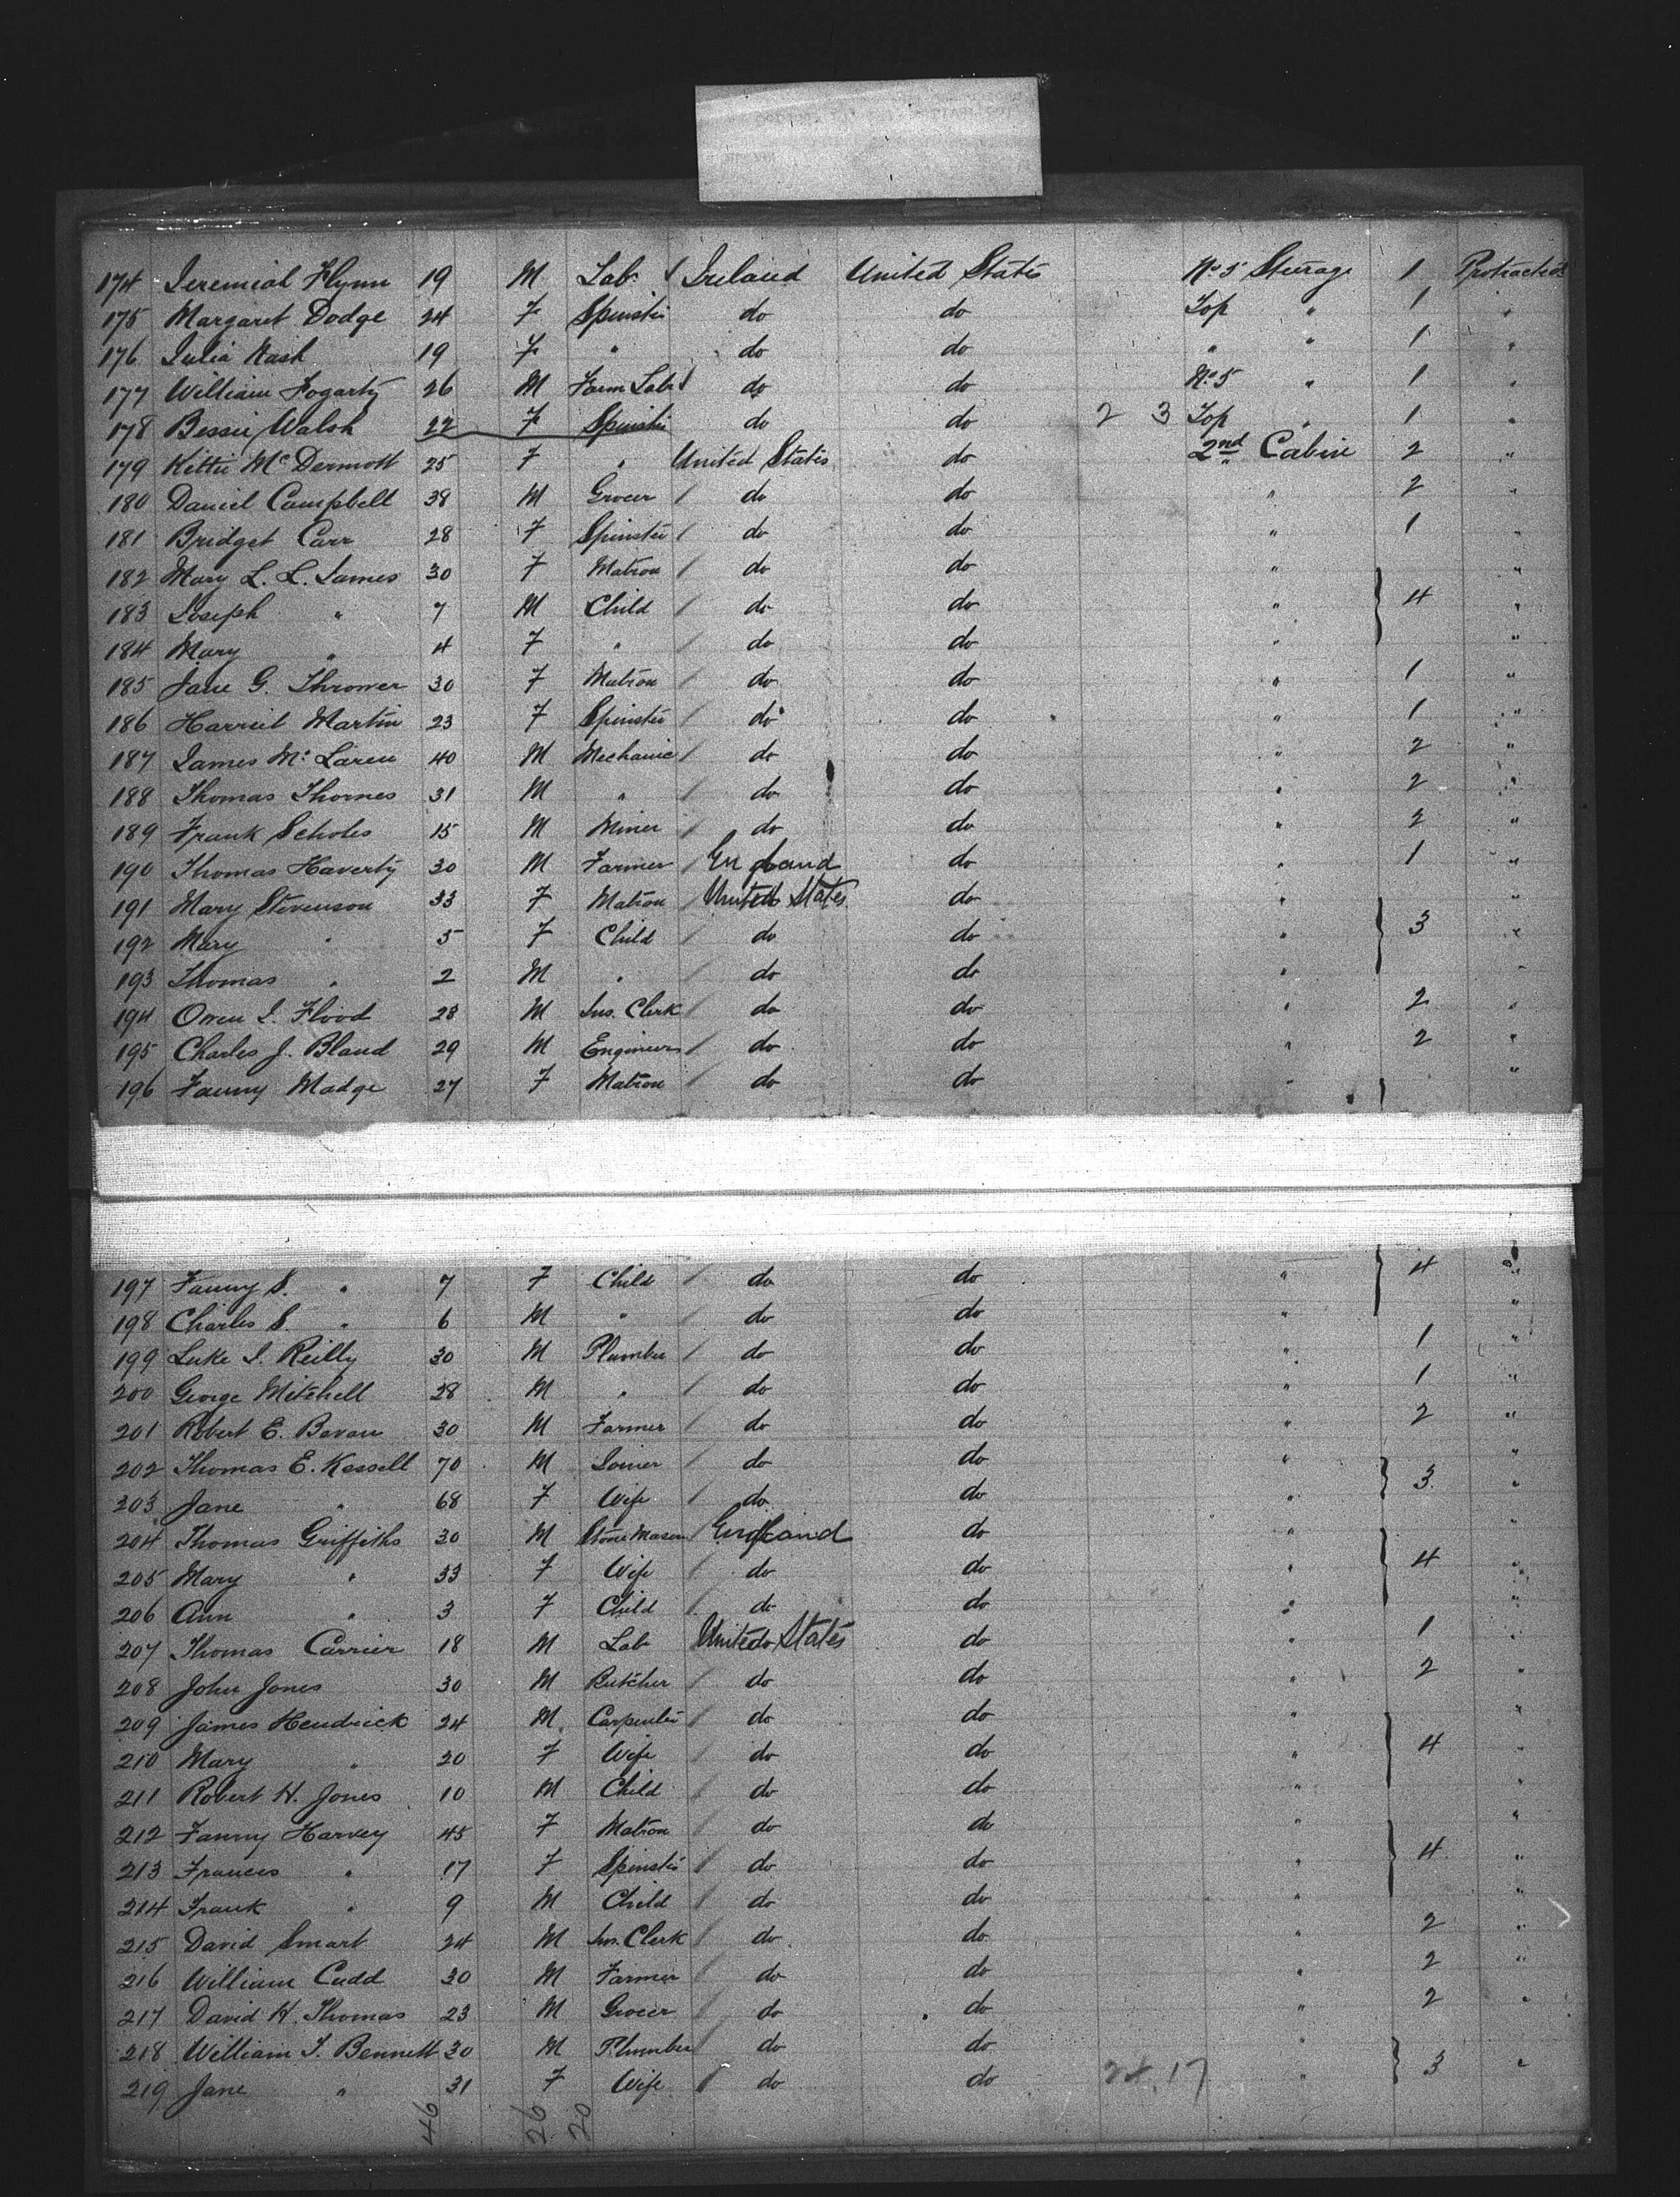 174 Jeremiah Flynn 19 M Lab Ireland United States No. 5 Steerage 1 Protracted
175 Margaret Dodge 24 F Spinster do do Top " 1 "
176 Julia Nash 19 F " do do " " 1 "
177 William Fogarty 26 M Farm Lab do do No. 5 " 1 "
178 Bessie Walsh 22 F Spinster do do 2 3 Top " 1 "
179 Kittie McDermott 25 F " United States do 2nd Cabin 2 "
180 Daniel Campbell 38 M Grocer / do do " 2 "
181 Bridget Carr 28 F Spinster / do do " 1 "
182 Mary L. L. James 30 F Matron / do do " "
183 Joseph " 7 M Child / do do " 4 "
184 Mary " 4 F " / do do " "
185 Jane G. Thrower 30 F Matron / do do " 1 "
186 Harriet Martin 23 F Spinster / do do " 1 "
187 James McLaren 40 M Mechanic / do do " 2 "
188 Thomas Thornes 31 M " / do do " 2 "
189 Frank Scholes 15 M Miner / do do " 2 "
190 Thomas Haverty 30 M Farmer / England do " 1 "
191 Mary Stevenson 33 F Matron / United States do " "
192 Mary " 5 F Child / do do " 3 "
193 Thomas " 2 M " / do do " "
194 Owen J. Flood 28 M Ins. Clerk / do do " 2 "
195 Charles J. Bland 29 M Engineer / do do " 2 "
196 Fanny Madge 27 F Matron / do do " "
197 Fanny S. " 7 F Child / do do " 4 "
198 Charles S. " 6 M " / do do " "
199 Luke J. Reilly 30 M Plumber / do do " 1 "
200 George Mitchell 28 M " / do do " 1 "
201 Robert E. Bevan 30 M Farmer / do do " 2 "
202 Thomas E. Kessell 70 M Joiner / do do " "
203 Jane " 68 F Wife / do do " 3 "
204 Thomas Griffiths 30 M Stone Mason / England do " "
205 Mary " 33 F Wife / do do " 4 "
206 Ann " 3 F Child / do do " "
207 Thomas Carrier 18 M Lab United States do " 1 "
208 John Jones 30 M Butcher / do do " 2 "
209 James Hendrick 24 M Carpenter / do do " "
210 Mary " 20 F Wife / do do " 4 "
211 Robert H. Jones 10 M Child / do do " "
212 Fanny Harvey 45 F Matron / do do " "
213 Frances " 17 F Spinster / do do " 4 "
214 Frank " 9 M Child / do do " "
215 David Smart 24 M Ins. Clerk / do do " 2 "
216 William Cudd 30 M Farmer / do do " 2 "
217 David H. Thomas 23 M Grocer / do do " 2 "
218 William T. Bennett 30 M Plumber / do do " "
219 Jane " 31 F Wife / do do 17 " 3 "
46 26 20